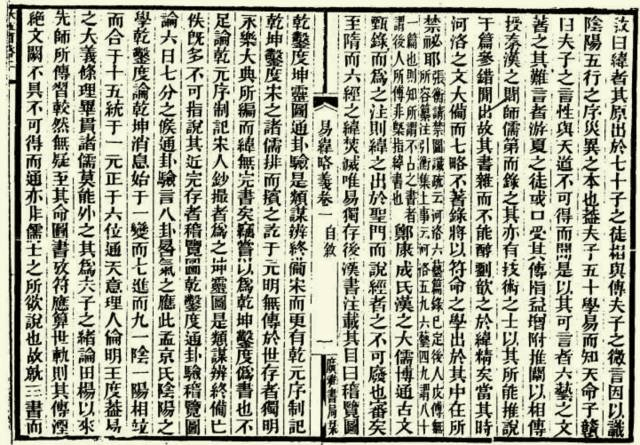 汝曰緯者其原出於七十子之徒相與傳夫子之微言因以識
陰陽五行之序災異之本也蓋夫子五十學易而知天命子贛
曰夫子之言性與天道不可得而聞是以其可言者六藝之文
著之其難言者游夏之徒或口受其傳指益增附推闡以相傳
授秦漢之閒師儒第而錄之其亦有技術之士以其所能推說
于篇參錯閒出故其書雜而不能醇劉歆之於緯精矣當其時
河洛之文大備而七略不著錄將以符命之學出於其中在所
禁祕耶張衡請禁圖讖疏云河洛六藝篇錄已定後人皮傅無
所容篡注引衡集上事云河洛五九六藝四九謂八十
一篇也則知所謂不占之書者
謂後人所傳非堅指緯書也鄭康成氏漢之大儒博通古文
甄錄而為之注則緯之出於聖門而說經者之不可廢也審矣
至隋而六經之緯焚滅唯易獨存後漢書注載其目曰稽覽圖
易緯略義卷一 自敘 一 廣雅書局栞
乾鑿度坤靈圖通卦驗是類謀辨終備宋而更有乾元序制記
乾坤鑿度宋之諸儒排而擯之訖于元明無傳於世存者獨明
永樂大典所編而緯無完書矣竊嘗以為乾坤鑿度偽書也不
足論乾元序制記宋人鈔撮者為之坤靈圖是類謀辨終備亡
佚既多不可指說其近完存者稽覽圖乾鑿度通卦驗稽覽圖
論六日七分之候通卦驗言八卦晷氣之應此孟京氏陰陽之
學乾鑿度論乾坤消息始于一變而七進而九一陰一陽相竝
而合于十五統于一元正于六位通天意理人倫明王度蓋易
之大義條理畢貫諸儒莫能外之其為夫子之緒論田楊以來
先師所傳習較然無疑至其命圖書攷符應算世軌則其傳湮
絕文闕不具不可得而通亦非儒士之所欲說也故就三書而